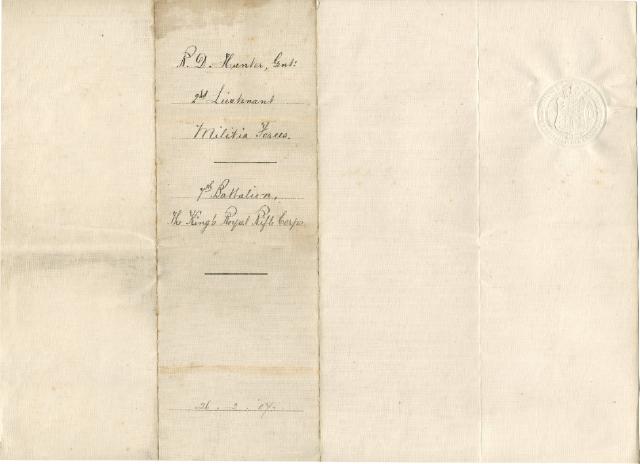 R. D. Hunter, Gent:
2nd Lieutenant
Militia Forces.
7th Battalion,
The King's Royal Rifle Corps
26 . 2 . '07.